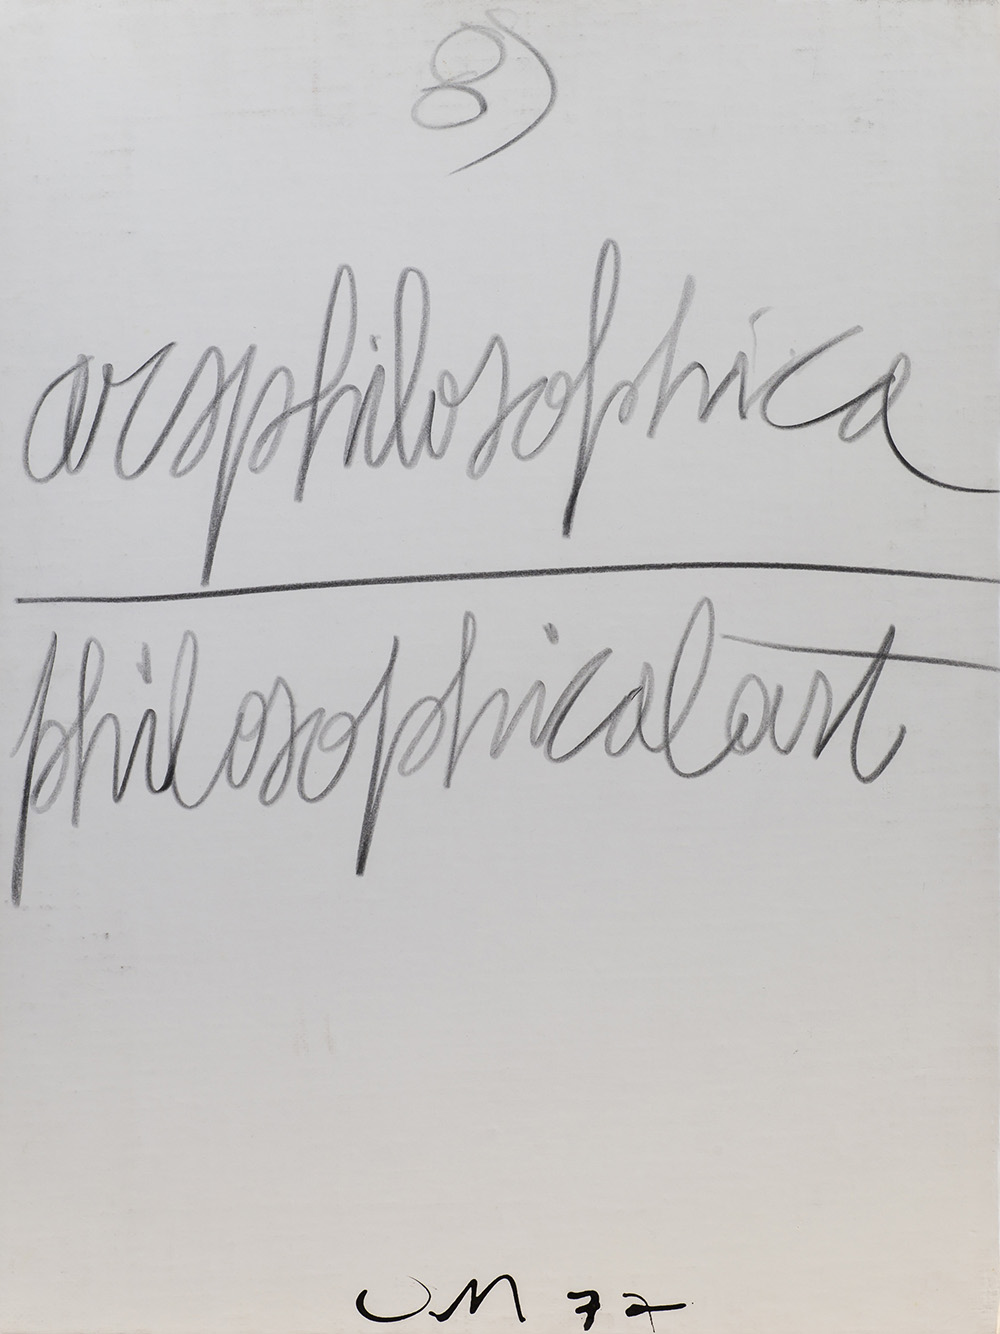 8)
arsphilosophica
philosophicalart
VM 77